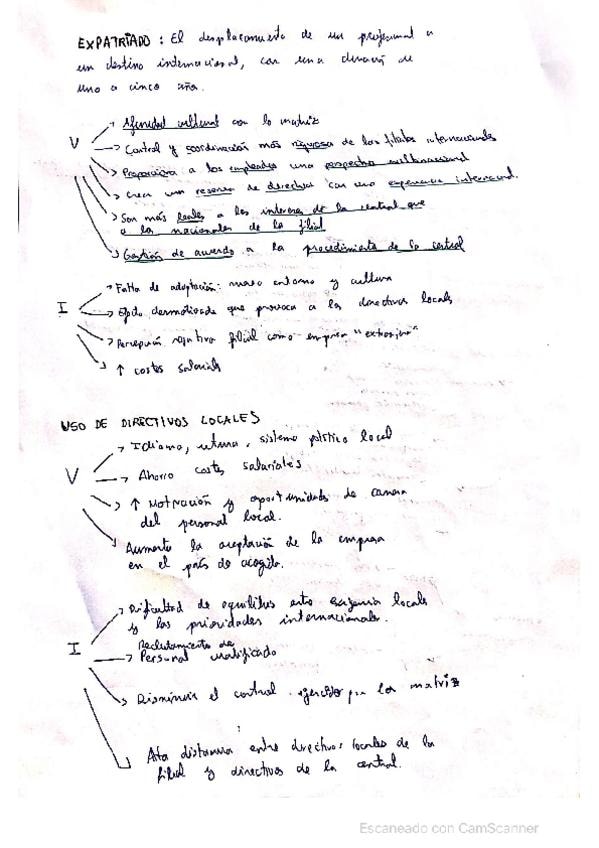 EXPATRIADO: El desplazamiento de un profesional a
un destino internacional, con una duración de
uno a cinco años.
→ Afinidad cultural con la matriz
V
→ Control y coordinación más rigurosa de las filiales internacionales
→ Proporciona a los empleados una perspectiva multinacional
→ Crea una reserva de directivos con una experiencia internacional.
→ Son más leales a los intereses de la central que
a los nacionales de la filial
→ Gestión de acuerdo a los procedimientos de la central
→ Falta de adaptación: nuevo entorno y cultura
I
→ Efecto desmotivador que provoca a los directivos locales
→ Percepción negativa filial como empresa "extranjera"
→ ↑ costes salariales
USO DE DIRECTIVOS LOCALES
→ Idioma, cultura, sistema político local
V
→ Ahorro costes salariales
→ ↑ Motivación y oportunidades de carrera
del personal local.
→ Aumenta la aceptación de la empresa
en el país de acogida.
→ Dificultad de equilibrio entre exigencias locales
y las prioridades internacionales.
I
→ Reclutamiento de
Personal cualificado
→ Disminuir el control ejercido por la matriz
→ Alta distancia entre directivos locales de la
filial y directivos de la central.
Escaneado con CamScanner